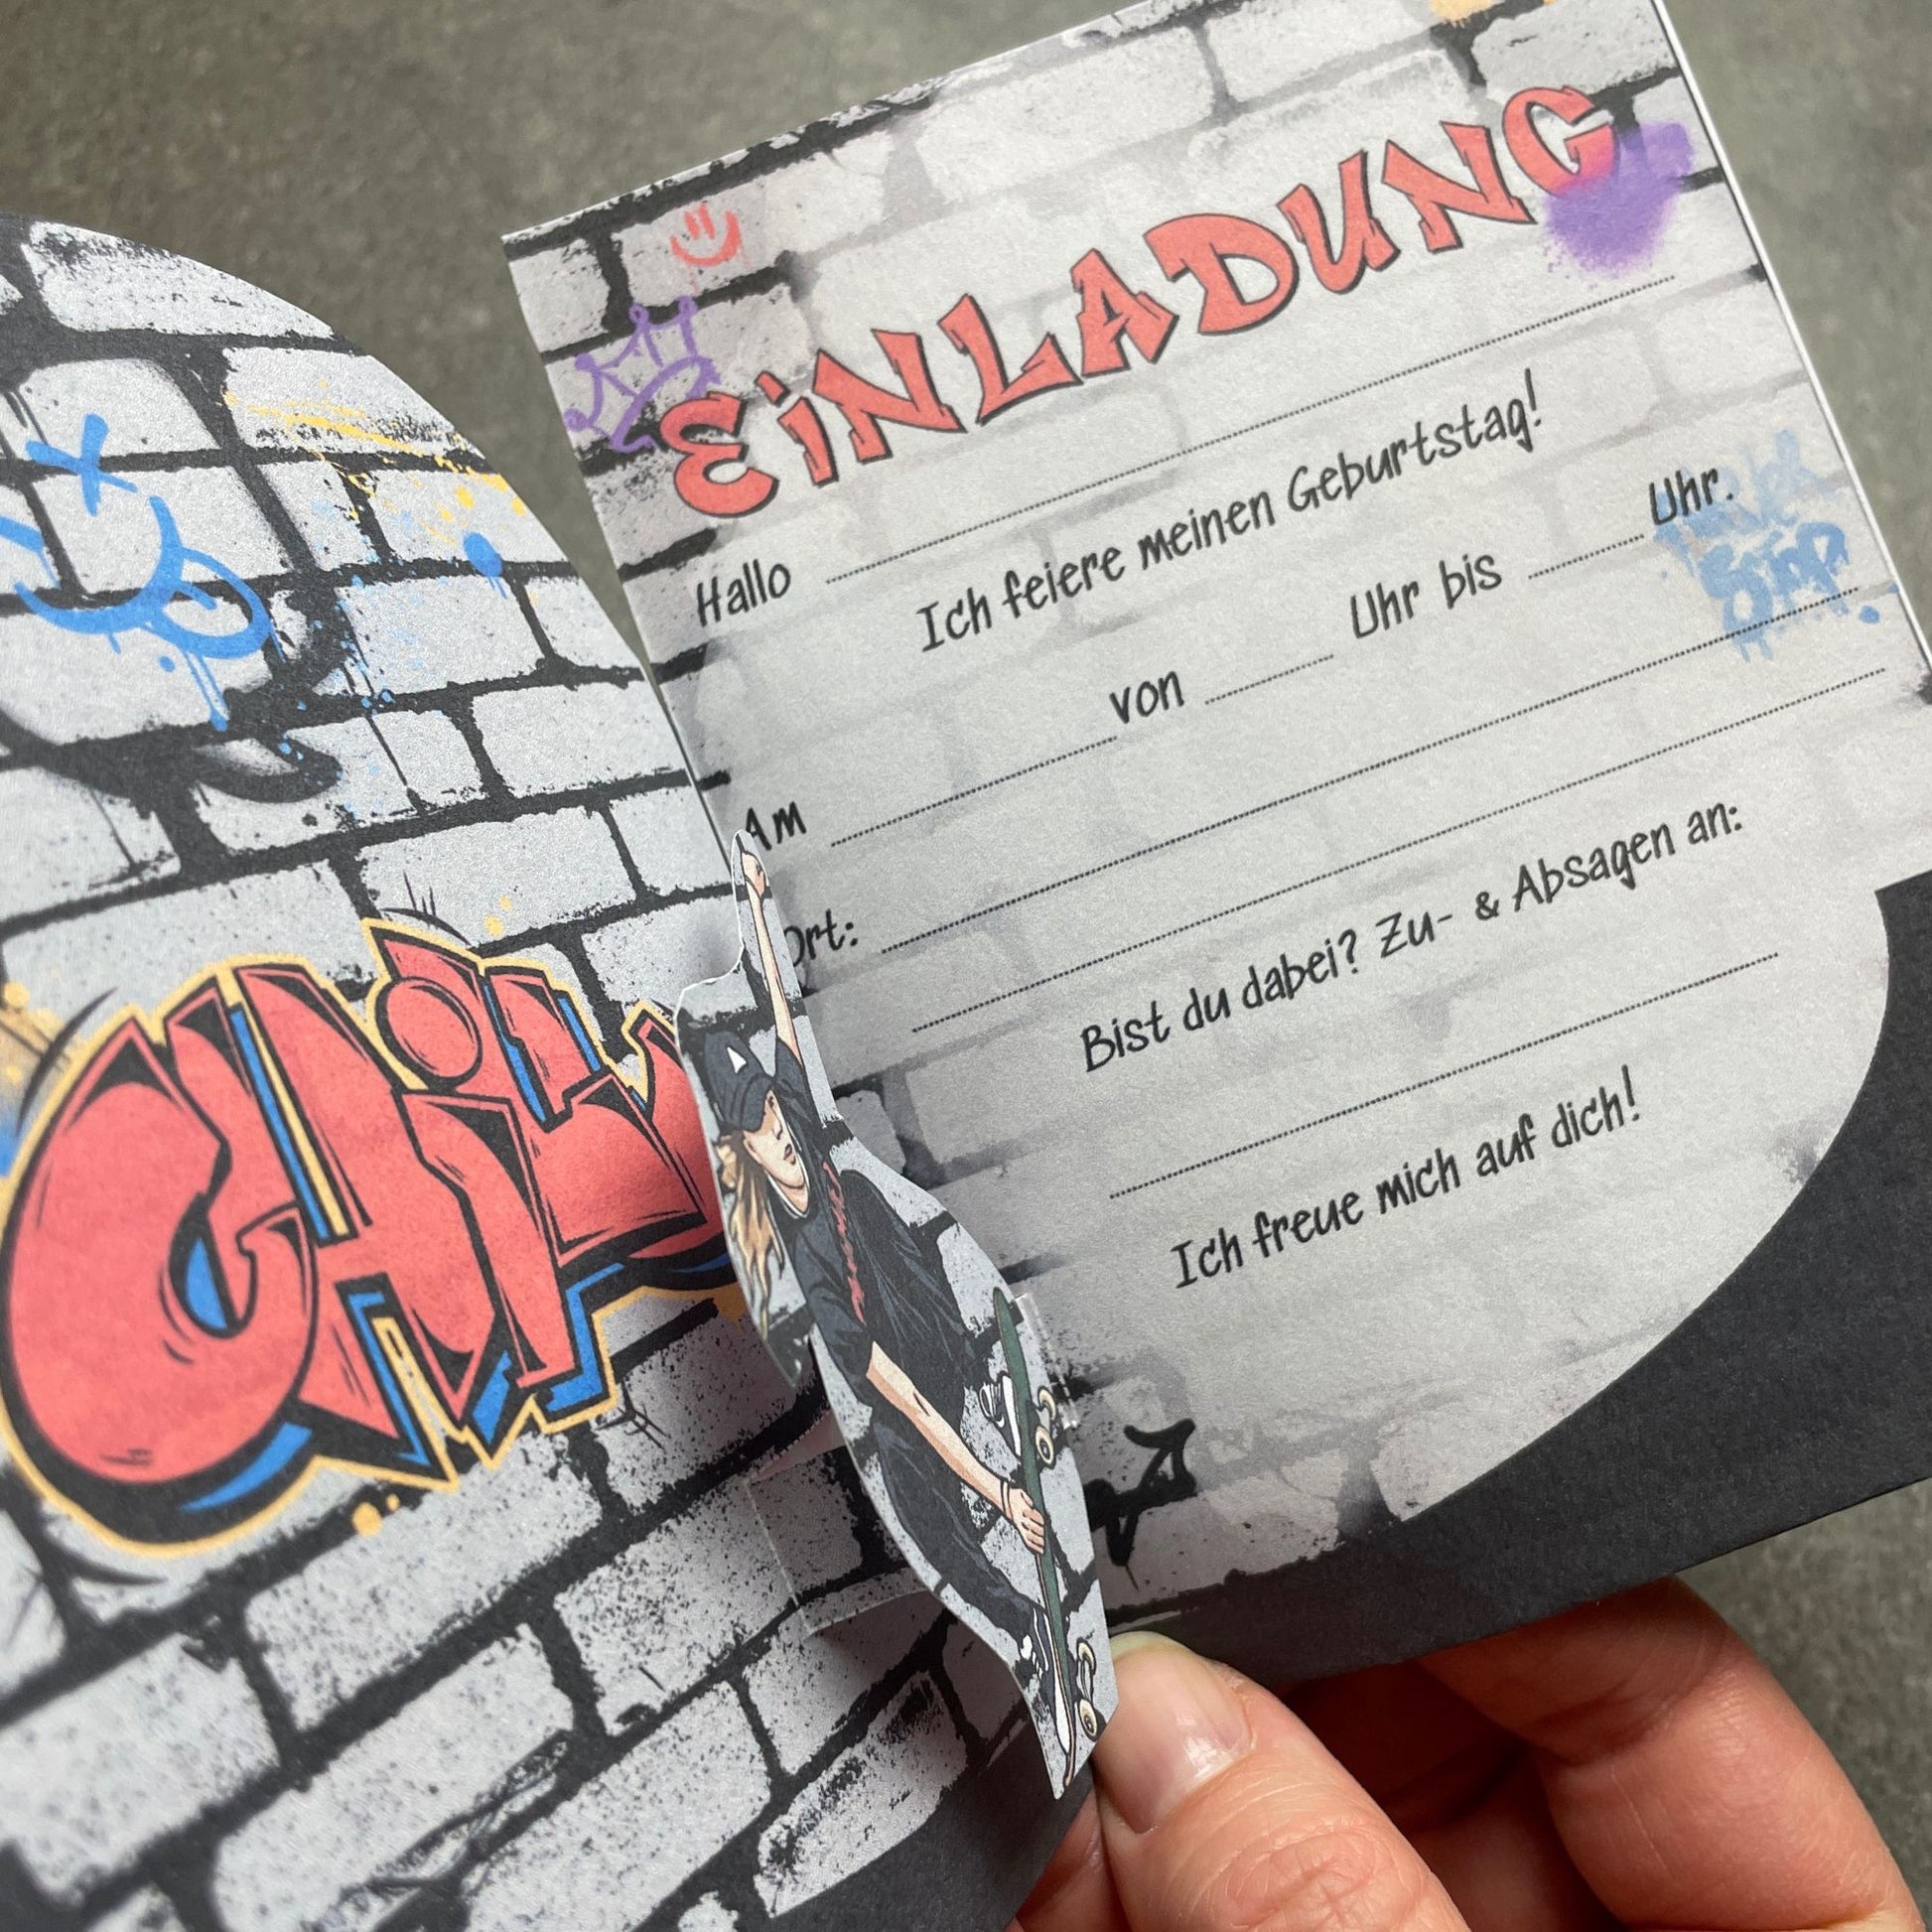 CHILL
EiNLADUNG
Hallo
Ich feiere meinen Geburtstag!
Am von Uhr bis Uhr.
Ort:
Bist du dabei? Zu- & Absagen an:
Ich freue mich auf dich!